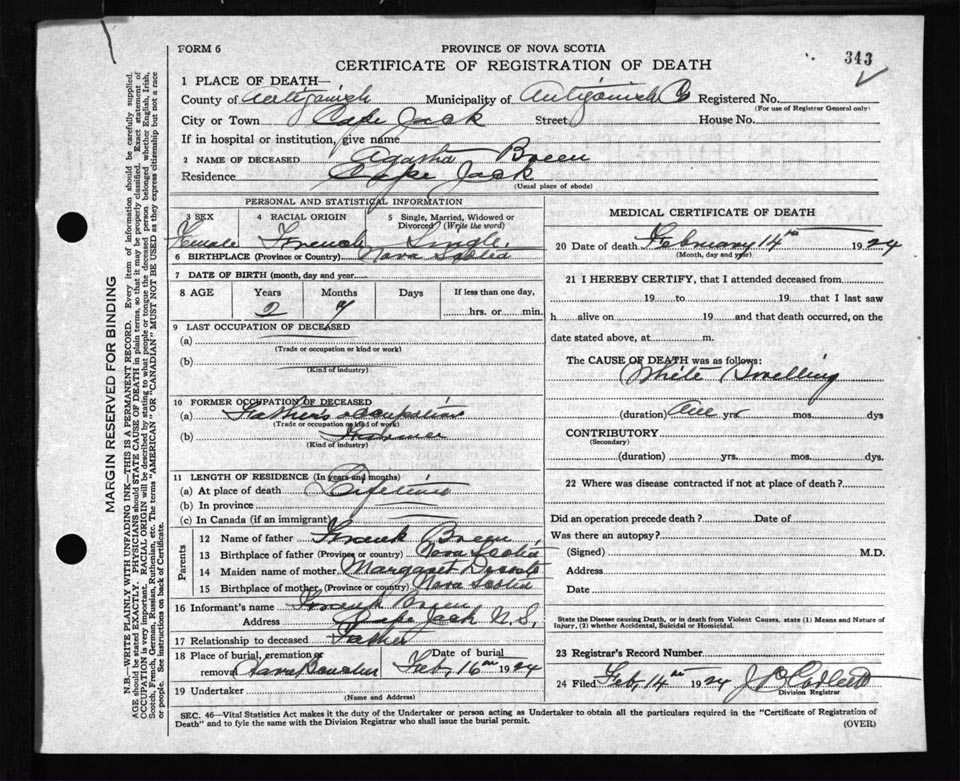 FORM 6
PROVINCE OF NOVA SCOTIA
343
CERTIFICATE OF REGISTRATION OF DEATH
1 PLACE OF DEATH—
County of Antigonish Municipality of Antigonish Co Registered No.
(For use of Registrar General only)
City or Town Cape Jack Street House No.
If in hospital or institution, give name
2 NAME OF DECEASED Agatha Breen
Residence Cape Jack
(Usual place of abode)
PERSONAL AND STATISTICAL INFORMATION
3 SEX 4 RACIAL ORIGIN 5 Single, Married, Widowed or Divorced (Write the word)
Female French Single.
6 BIRTHPLACE (Province or Country) Nova Scotia
7 DATE OF BIRTH (month, day and year)
8 AGE Years Months Days If less than one day,
2 7 hrs. or min.
9 LAST OCCUPATION OF DECEASED
(a)
(Trade or occupation or kind or work)
(b)
(Kind of industry)
10 FORMER OCCUPATION OF DECEASED
(a) Father's occupation
(Trade or occupation or kind of work)
(b) Fisherman
(Kind of industry)
11 LENGTH OF RESIDENCE (In years and months)
(a) At place of death Lifetime
(b) In province
(c) In Canada (if an immigrant)
Parents
12 Name of father Frank Breen
13 Birthplace of father (Province or country) Nova Scotia
14 Maiden name of mother Margaret
15 Birthplace of mother (Province or country) Nova Scotia
16 Informant's name Frank Breen
Address Cape Jack N.S.
17 Relationship to deceased Father
18 Place of burial, cremation or removal Havre Boucher Date of burial Feb, 16th 1924
19 Undertaker
(Name and Address)
MEDICAL CERTIFICATE OF DEATH
20 Date of death February 14th 1924
(Month, day and year)
21 I HEREBY CERTIFY, that I attended deceased from
19 to 19 that I last saw
h alive on 19 and that death occurred, on the
date stated above, at m.
The CAUSE OF DEATH was as follows:
White Swelling
(duration) One yrs. mos. dys
CONTRIBUTORY
(Secondary)
(duration) yrs. mos. dys.
22 Where was disease contracted if not at place of death?
Did an operation precede death? Date of
Was there an autopsy?
(Signed) M.D.
Address
Date
State the Disease causing Death, or in death from Violent Causes, state (1) Means and Nature of
Injury, (2) whether Accidental, Suicidal or Homicidal.
23 Registrar's Record Number
24 Filed Feb, 14th 1924 J. P. Corbett
Division Registrar
SEC. 46—Vital Statistics Act makes it the duty of the Undertaker or person acting as Undertaker to obtain all the particulars required in the "Certificate of Registration of
Death" and to fyle the same with the Division Registrar who shall issue the burial permit. (OVER)
MARGIN RESERVED FOR BINDING
N.B.—WRITE PLAINLY WITH UNFADING INK—THIS IS A PERMANENT RECORD. Every item of information should be carefully supplied.
AGE should be stated EXACTLY. PHYSICIANS should STATE CAUSE OF DEATH in plain terms, so that it may be properly classified. Exact statement of
OCCUPATION is very important. RACIAL ORIGIN will be described by stating to what people or tongue the deceased person belonged whether English, Irish,
Scotch, French, German, Russian, Ruthenian, etc. The terms "AMERICAN" OR "CANADIAN" MUST NOT BE USED as they express citizenship but not a race
or people. See instructions on back of Certificate.